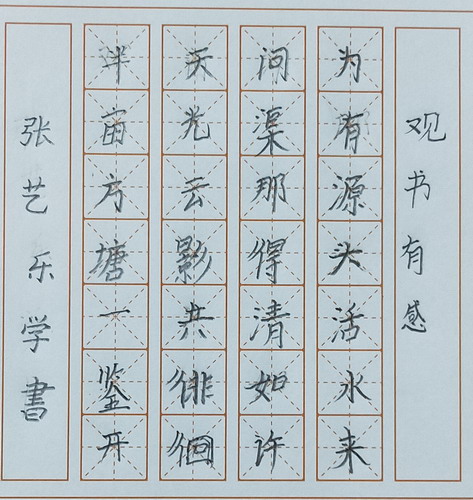 观书有感
为有源头活水来
问渠那得清如许
天光云影共徘徊
半亩方塘一鉴开
张艺乐学書